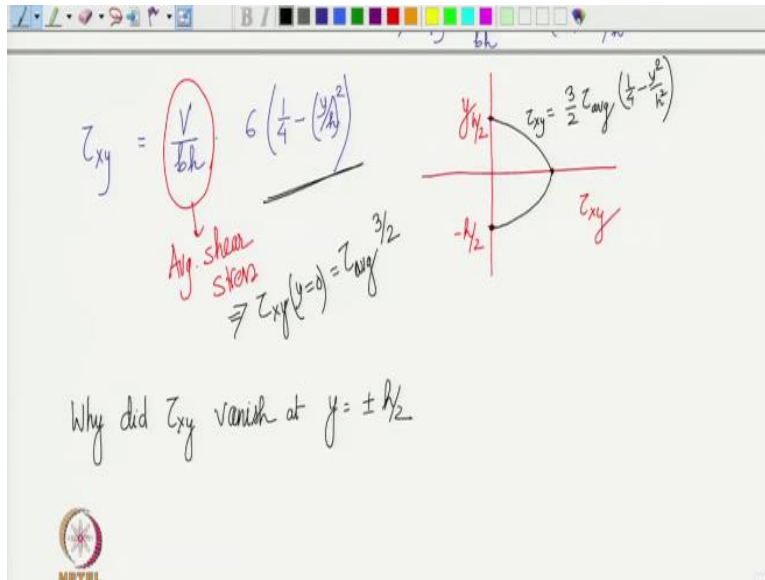 B I
bh
τxy = V/bh · 6 (1/4 - (y/h)²)
Avg. shear
stress
⇒ τxy(y=0) = τavg 3/2
y
h/2
-h/2
τxy = 3/2 τavg (1/4 - y²/h²)
τxy
Why did τxy vanish at y = ± h/2